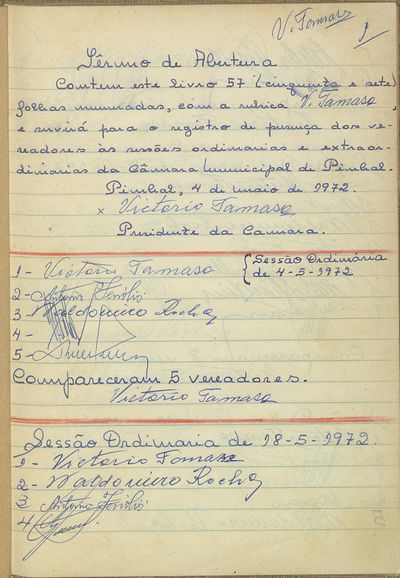 V. Tamaso
1
Têrmo de Abertura
Contem este livro 57 (cinquenta e sete)
folhas numeradas, com a rubrica V. Tamaso,
e servirá para o registro de presença dos ve-
readores às sessões ordinarias e extraor-
dinarias da Câmara Municipal de Pinhal.
Pinhal, 4 de maio de 1972.
x Victorio Tamaso
Presidente da Camara.
1 - Victorio Tamaso
{Sessão Ordinária
de 4-5-1972
2 - Antonio
3 - Waldomiro Rocha
4 -
5 -
Compareceram 5 vereadores.
Victorio Tamaso
Sessão Ordinaria de 18-5-1972.
1 - Victorio Tamaso
2 - Waldomiro Rocha
3 Antonio
4